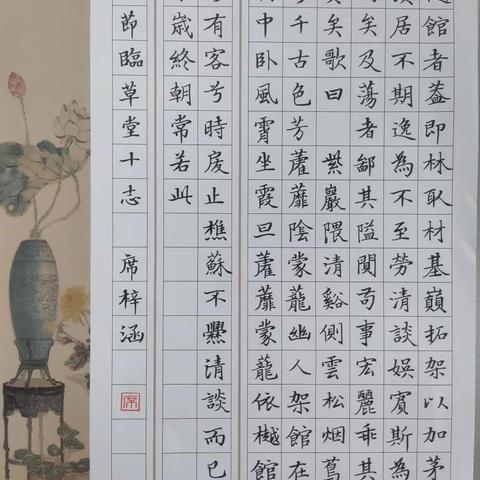 館者蓋即林取材基巔拓架以加茅
居不期逸為不至勞清談娛賓斯為
矣及蕩者鄙其隘閴苟事宏麗乖其
矣歌曰 紫巖隈清谿側雲松烟蔦
千古色芳蘿蘼陰蒙蘢幽人架館在
中卧風霄坐霞旦蘿蘼蒙蘢依樾館
有客兮時戾止樵蘇不爨清談而已
歲終朝常若此
節臨草堂十志 席梓涵
席